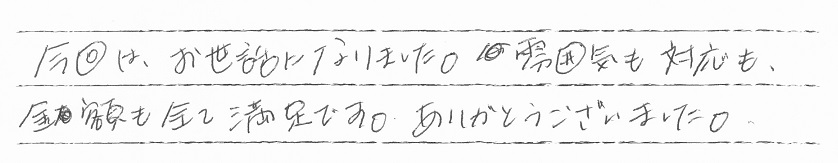 今回は、お世話になりました。雰囲気も対応も、
金額も全て満足です。ありがとうございました。